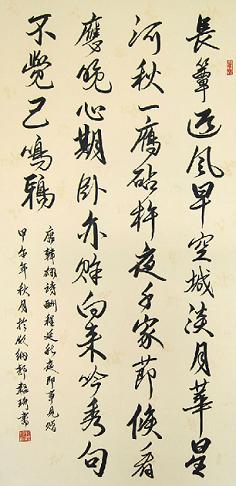 長簟迎風早空城淡月華星
河秋一鴈砧杵夜千家節候看
應晚心期臥亦賒向來吟秀句
不覺已鳴鴉
唐韓翃詩酬程延秋夜即事見贈
甲午年秋月於書